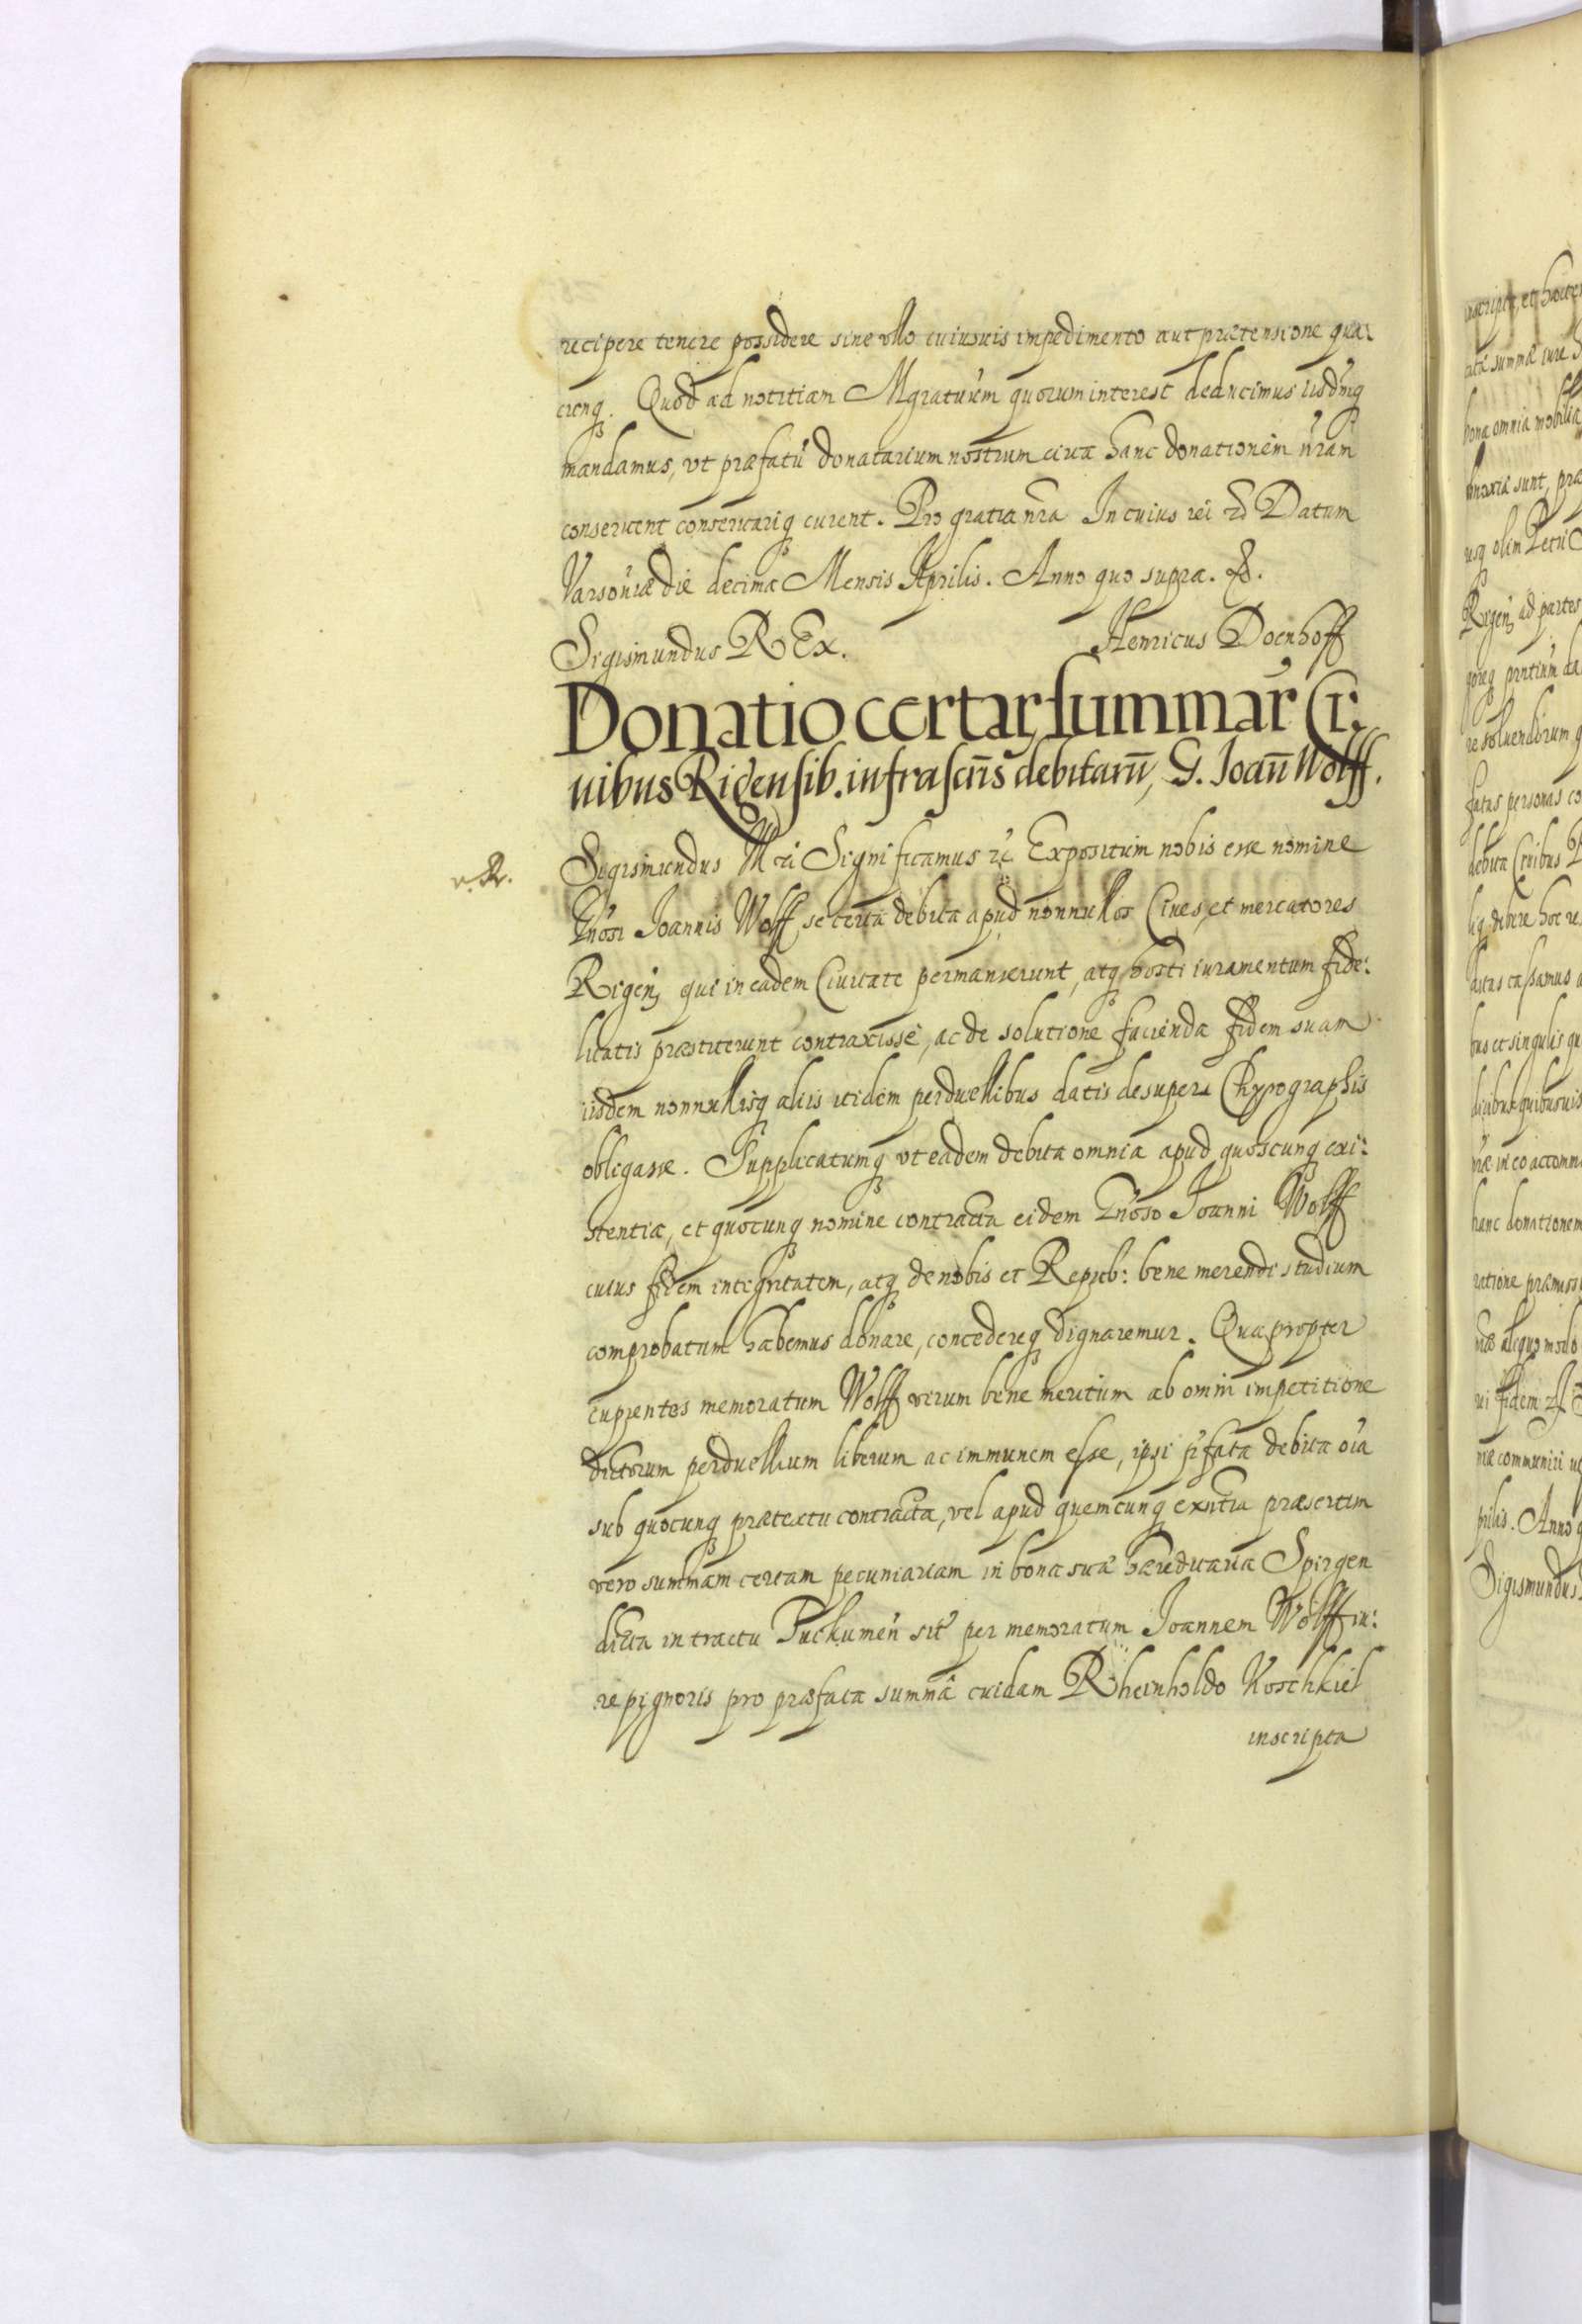 recipere tenere possidere sine ullo cuiusuis impedimento aut prætensione qua:
cunq. Quod ad notitiam Mgratuum quorum interest deducimus iisdmq
mandamus, vt præfatū donatarium nostrum circa hanc donationem nram
conseruent conseruariq curent. Pro gratia nra In cuius rei Datum
Varsouiæ die decima Mensis Aprilis. Anno quo supra.
Sigismundus REx. Henricus Doenhoff
Donatio certar summar Ci:
uibus Rigensib. infrascris debitarū, G. Joan Wolff.
Sigismundus Significamus Expositum nobis esse nomine
Gnosi Joannis Wolff se certa debita apud nonnullos Ciues, et mercatores
Rigen qui in eadem Ciuitate permanserunt, atq hosti iuramentum fide:
litatis præstiterunt contraxisse, ac de solutione facienda fidem suam
iisdem nonnullisq aliis itidem perduellibus datis desuper Chyrographis
obligasse. Supplicatumq vt eadem debita omnia apud quoscunq exi:
stentia, et quocunq nomine contracta eidem Gnoso Joanni Wolff
cuius fidem integritatem, atq de nobis et Repub: bene merendi studium
comprobatum habemus donare, concedereq dignaremur. Quapropter
cupientes memoratum Wolff virum bene meritum ab omni impetitione
dictorum perduellium liberum ac immunem esse, ipsi pfata debita oia
sub quocunq prætextu contracta, vel apud quemcunq exntia præsertim
vero summam certam pecuniariam in bona sua hæreditaria Spirgen
dicta in tractu Tuckumen sit per memoratum Joannem Wolff iu:
re pignoris pro præfata summâ cuidam Rheinholdo Koschkiel
inscripta